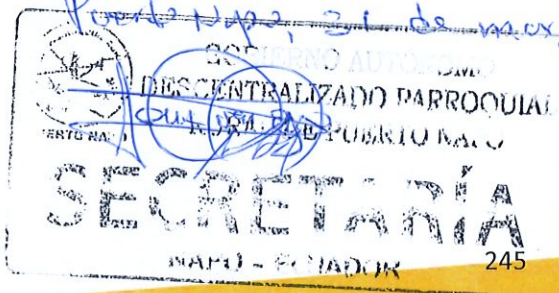 Puerto Napo, 31 de
GOBIERNO AUTÓNOMO
DESCENTRALIZADO PARROQUIAL
RURAL DE PUERTO NAPO
PUERTO NAPO
SECRETARÍA
NAPO - ECUADOR
245